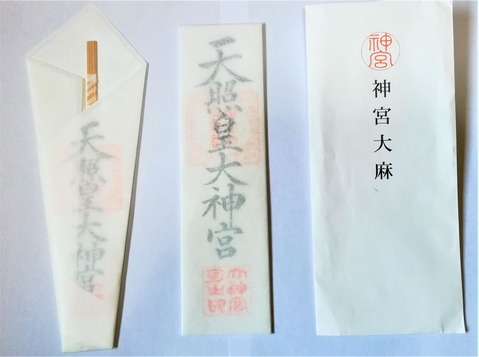 天照皇大神宮
天照皇大神宮
大神宮
神宮
神宮大麻